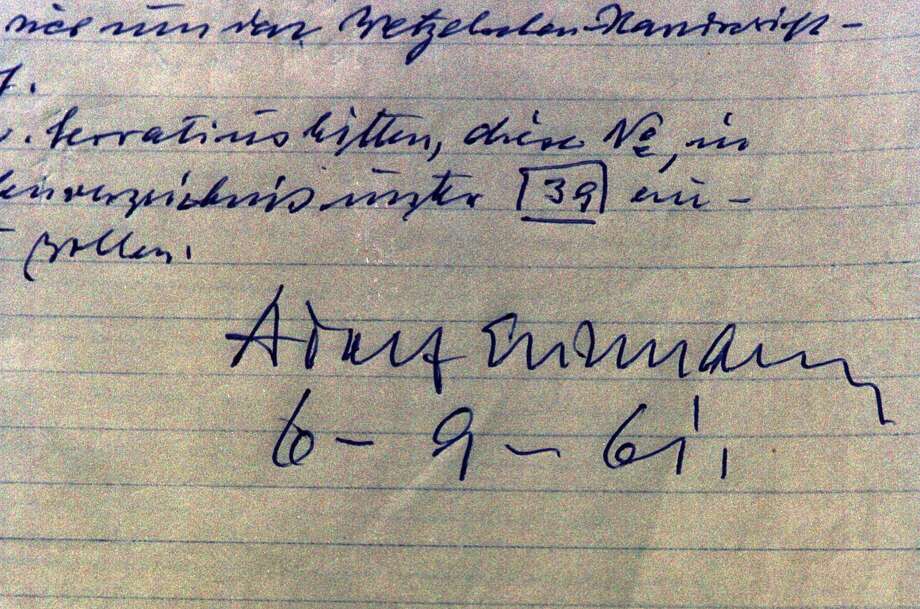 um den Wetzelschen Handschrift-
. Servatius bitten, diese Nr., in
enverzeichnis unter 39 ein-
wollen.
Adolf Eichmann
6-9-61.